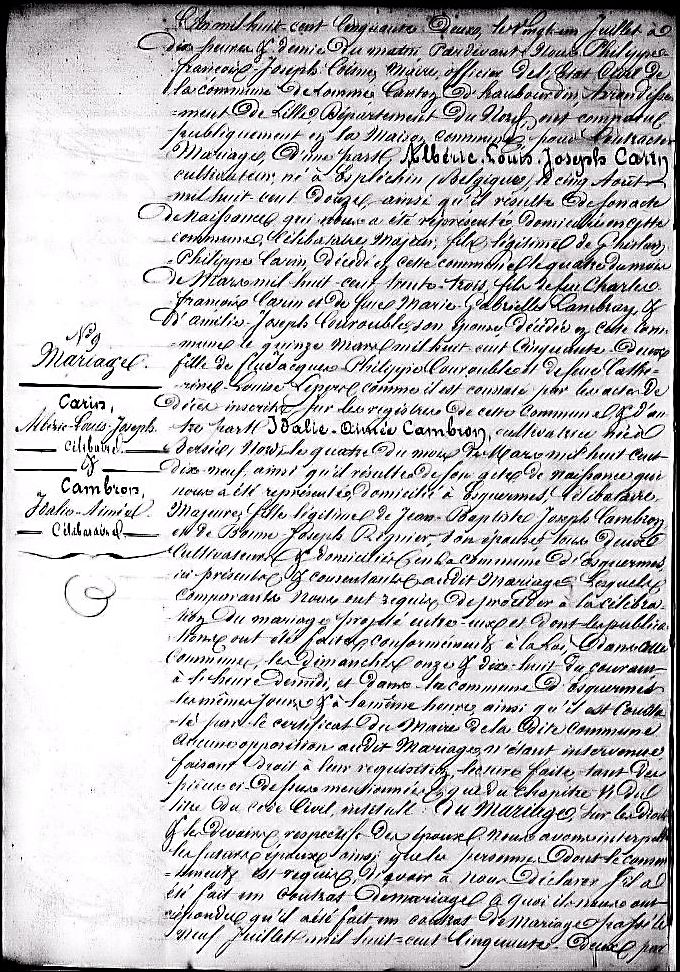 L'An mil huit cent cinquante deux, le vingt un Juillet à
dix heures & demie du matin Pardevant Nous Philippe
françois Joseph Maire, officier de l'Etat Civil de
la commune de Lomme Canton d'haubourdin, Arrondisse-
-ment de Lille Département du Nord, ont comparu
publiquement en la Maison commune pour Contracter
Mariage, D'une part Albéric-Louis-Joseph Carin
cultivateur, né à Esplechin (Belgique), le cinq Août
mil huit cent douze, ainsi qu'il résulte de son acte
de Naissance qui nous a été représenté domicilié en cette
commune, Célibataire Majeur, fils légitime de Ghislain
Philippe Carin, décédé en cette commune le quatre du mois
de Mars mil huit cent trente-trois, fils de feu Charles
françois Carin et de feue Marie-Gabrielle Lambray, &
d'amélie-Joseph Couroublé, son épouse décédée en cette com-
-mune le quinze Mars mil huit cent cinquante-deux
fille de feu Jacques-Philippe Couroublé et de feue Cathe-
-rine-Louise comme il est constaté par les actes de
décès inscrits sur les registres de cette Commune & d'au-
-tre part Idalie-Aimée Cambron, cultivatrice née à
Bersée, Nord, le quatre du mois de Mars mil huit cent
dix-neuf, ainsi qu'il résulte de son acte de naissance qui
nous a été représenté domiciliée à Esquermes, Célibataire
Majeure, fille légitime de Jean-Baptiste Joseph Cambron
et de Bonne Joseph Regnier, son épouse, tous deux
Cultivateurs & domiciliés en la commune d'Esquermes
ici présents & consentants audit Mariage, Lesquels
Comparants Nous ont requis de procéder à la célébra-
-tion du mariage projeté entre-eux et dont les publica-
-tions ont été faites conformément à la loi, dans cette
Commune, les dimanches onze & dix-huit du courant
à l'heure de midi, et dans la commune d'Esquermes
les mêmes jours & à la même heure ainsi qu'il est consta-
-té par le certificat du Maire de la dite commune
Aucune opposition audit Mariage n'étant intervenue,
faisant droit à leur requisition, lecture faite, tant des
pièces ci-dessus mentionnées, que du chapitre VI du
titre du code Civil, intitulé du Mariage, sur les droits
& les devoirs respectifs des époux, Nous avons interpellé
les futurs époux ainsi que les personnes dont le consen-
-tement est requis, d'avoir à nous déclarer s'il a
été fait un contrat de mariage, à quoi ils nous ont
répondu qu'il a été fait un contrat de Mariage passé le
neuf Juillet mil huit-cent cinquante-deux par
N° 9
Mariage.
Carin,
Albéric-Louis-Joseph.
Célibataire
&
Cambron,
Idalie-Aimée.
Célibataire